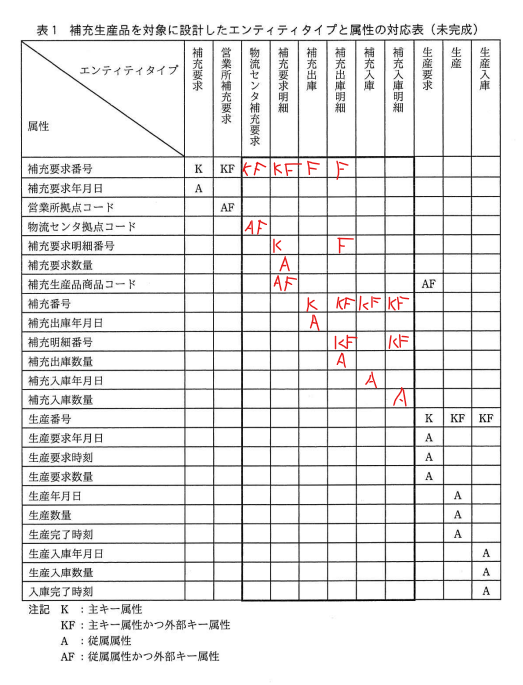 表1 補充生産品を対象に設計したエンティティタイプと属性の対応表（未完成）
エンティティタイプ
属性
補充要求
営業所補充要求
物流センタ補充要求
補充要求明細
補充出庫
補充出庫明細
補充入庫
補充入庫明細
生産要求
生産
生産入庫
補充要求番号 K KF KF KF F F
補充要求年月日 A
営業所拠点コード AF
物流センタ拠点コード AF
補充要求明細番号 K F
補充要求数量 A
補充生産品商品コード AF AF
補充番号 K KF KF KF
補充出庫年月日 A
補充明細番号 KF KF
補充出庫数量 A
補充入庫年月日 A
補充入庫数量 A
生産番号 K KF KF
生産要求年月日 A
生産要求時刻 A
生産要求数量 A
生産年月日 A
生産数量 A
生産完了時刻 A
生産入庫年月日 A
生産入庫数量 A
入庫完了時刻 A
注記 K ：主キー属性
KF：主キー属性かつ外部キー属性
A ：従属属性
AF：従属属性かつ外部キー属性